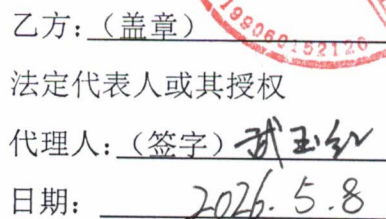 乙方：（盖章）
199060152126
法定代表人或其授权
代理人：（签字）武玉红
日期： 2026.5.8